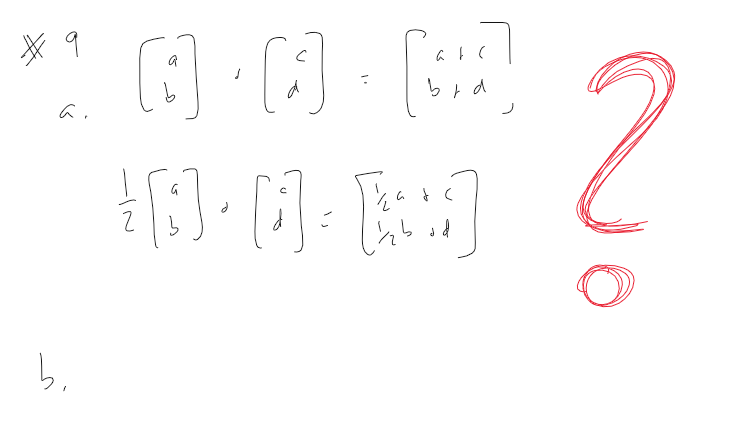 ※ 9
a. [a b] + [c d] = [a + c b + d]
1/2 [a b] + [c d] = [1/2 a + c 1/2 b + d]
?
b.